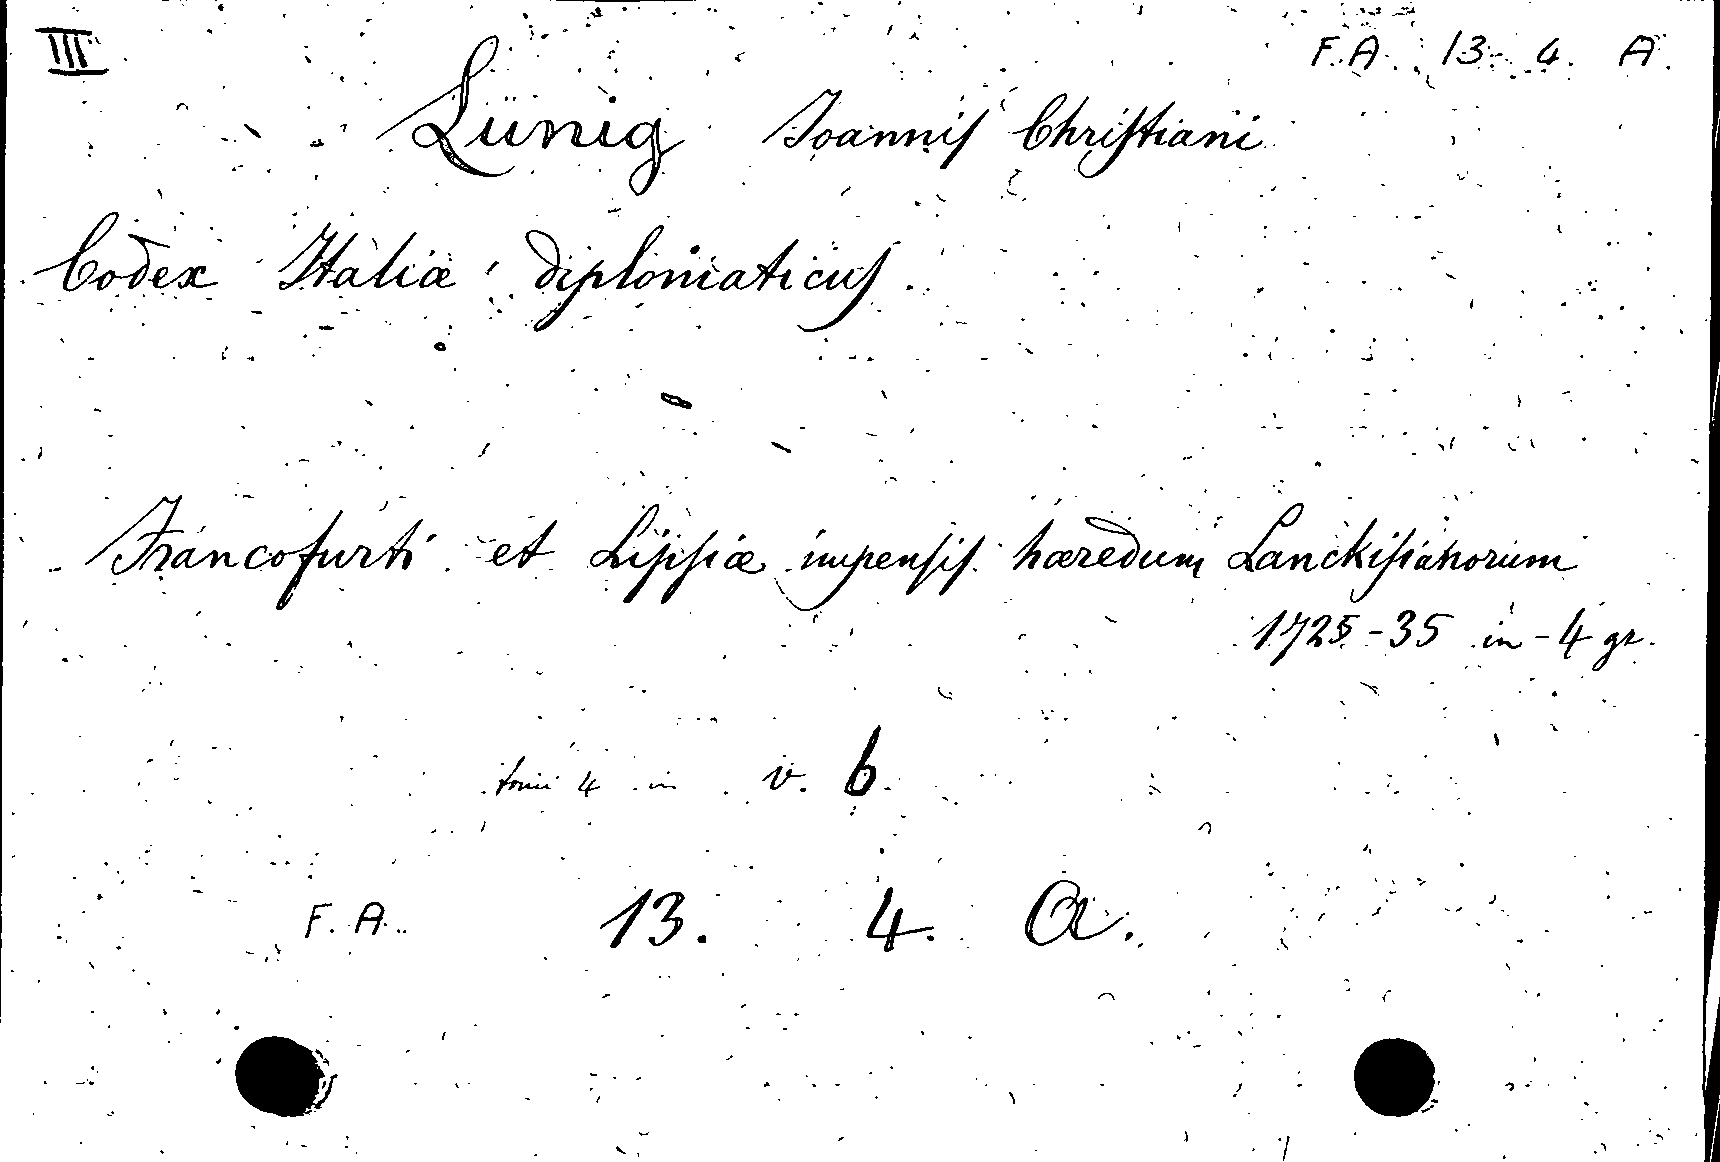 III F. A. 13 4. A.
Lünig Joannis Christiani
Codex Italiæ diplomaticus.
Francofurti et Lipsiæ impensis hæredum Lanckisianorum
1725-35 in-4 gr.
tomi 4 in v. 6
F. A. 13. 4. A.